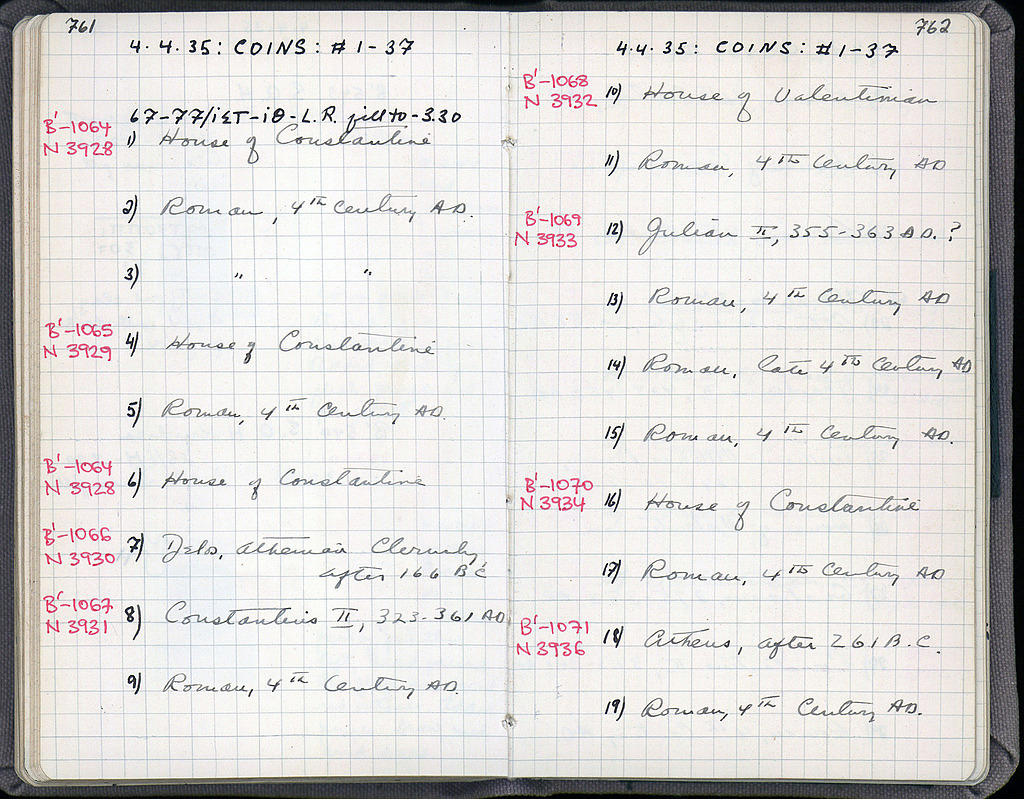 761
4.4.35: COINS: #1-37
67-77/ΙΣΤ-ΙΘ-L.R. fill to -3.30
B'-1064
N 3928
1) House of Constantine
2) Roman, 4TH Century AD.
3) " "
B'-1065
N 3929
4) House of Constantine
5) Roman, 4TH Century AD.
B'-1064
N 3928
6) House of Constantine
B'-1066
N 3930
7) Delos, Athenian Cleruchy,
after 166 BC
B'-1067
N 3931
8) Constantius II, 323-361 AD
9) Roman, 4TH Century AD.
762
4.4.35: COINS: #1-37
B'-1068
N 3932
10) House of Valentinian
11) Roman, 4TH Century AD
B'-1069
N 3933
12) Julian II, 355-363 AD.?
13) Roman, 4TH Century AD
14) Roman, late 4TH Century AD
15) Roman, 4TH Century AD.
B'-1070
N 3934
16) House of Constantine
17) Roman, 4TH Century AD
B'-1071
N 3936
18) Athens, after 261 B.C.
19) Roman, 4TH Century AD.